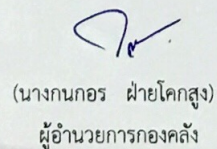 (นางกนกอร ฝ่ายโคกสูง)
ผู้อำนวยการกองคลัง